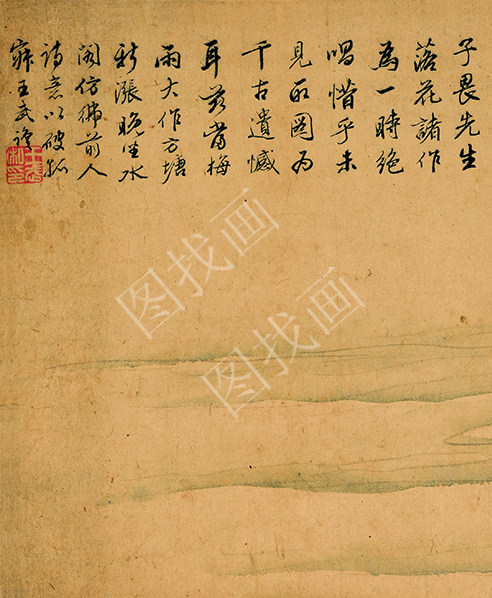 子畏先生
落花諸作
為一時絕
唱惜乎未
見所圖为
千古遺憾
耳茲當梅
雨大作方塘
新漲晚坐水
閣仿彿前人
詩意以破孤
寂王武識
图找画
图找画